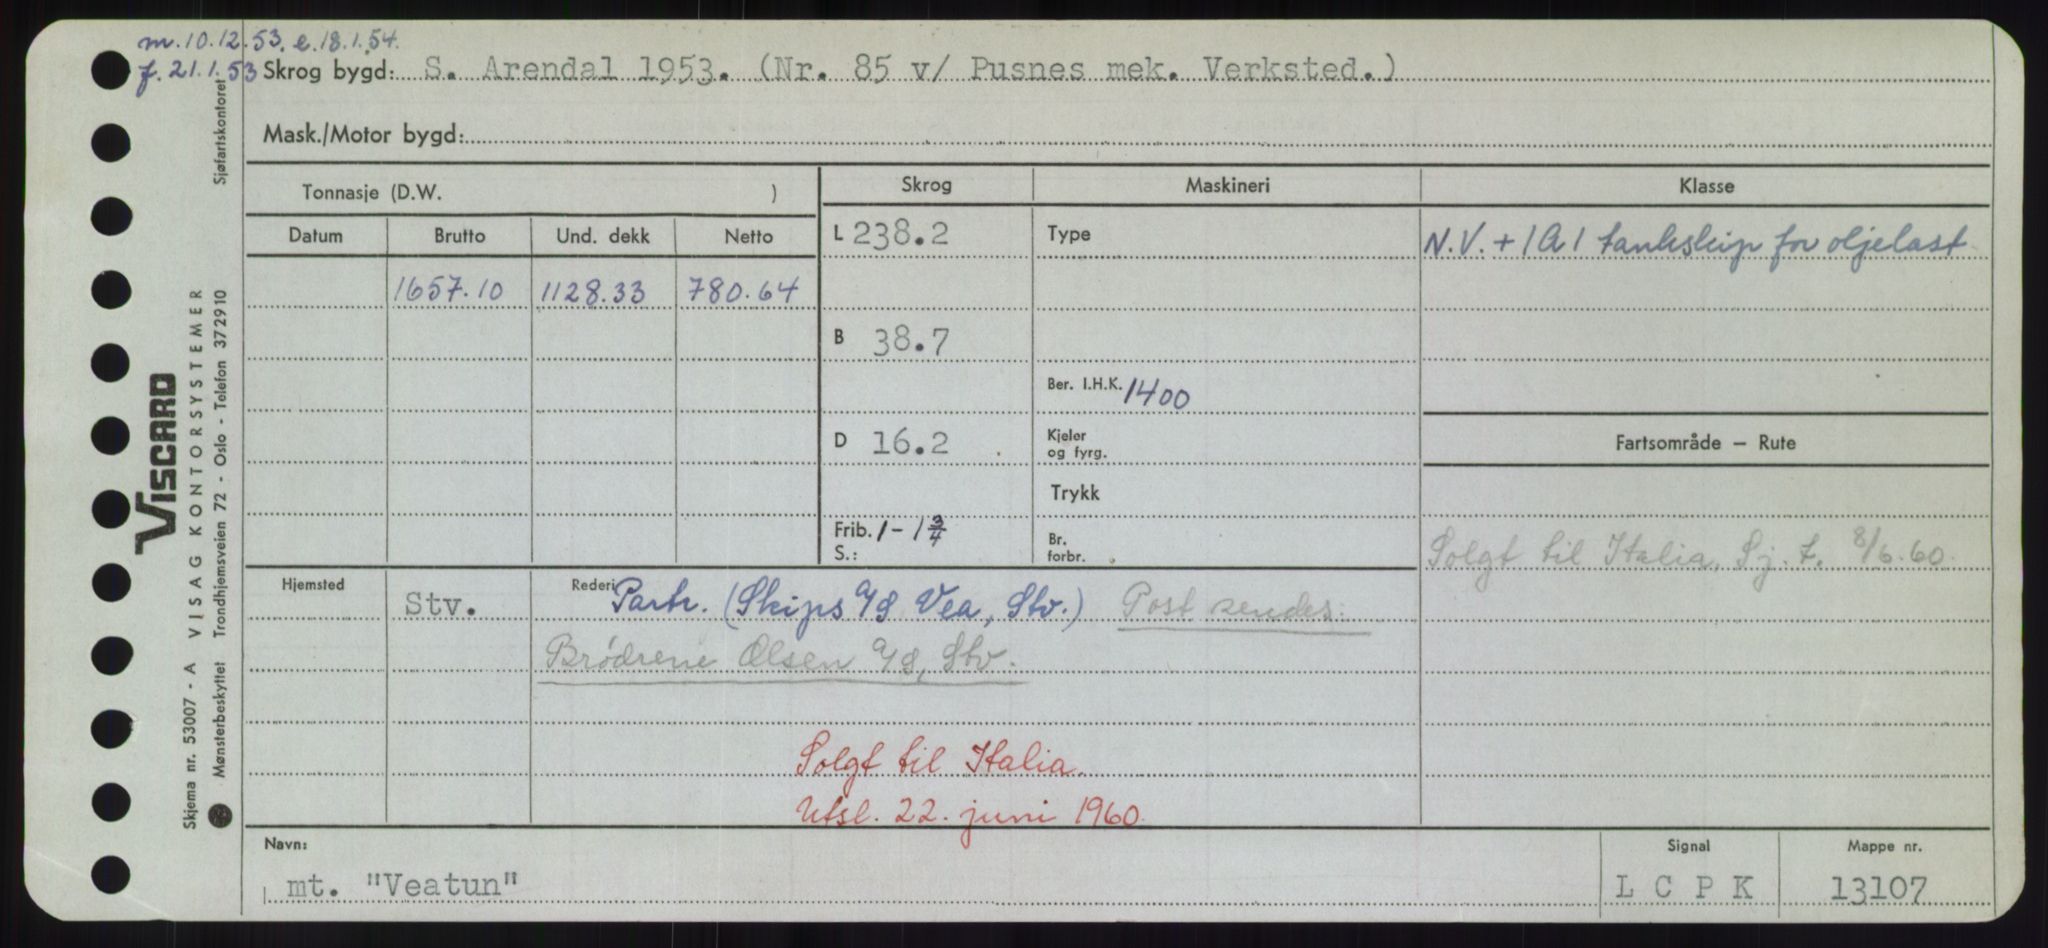 m. 10.12.53. e. 18.1.54.
f. 21.1.53 Skrog bygd: S. Arendal 1953. (Nr. 85 v/ Pusnes mek. Verksted.)
Mask./Motor bygd:
Tonnasje (D.W. )
Skrog Maskineri Klasse
Datum Brutto Und. dekk Netto
L 238.2 Type N.V. + 1A1 tankskip for oljelast
1657.10 1128.33 780.64
B 38.7
Ber. I.H.K. 1400
D 16.2 Kjeler og fyrg. Fartsområde – Rute
Trykk
Frib. 1 - 1 3/4 Br. forbr.
S.:
Solgt til Italia, Sj. t. 8/6.60.
Hjemsted Stv. Rederi Partr. (Skips A/S Vea, Stv.) Post sendes:
Brödrene Olsen A/S, Stv.
Solgt til Italia.
Utsl. 22. juni 1960.
Navn: mt. "Veatun" Signal L C P K Mappe nr. 13107
VISCARD
Skjema nr. 53007 - A VISAG KONTORSYSTEMER
Mønsterbeskyttet Trondhjemsveien 72 - Oslo - Telefon 372910 Sjøfartskontoret